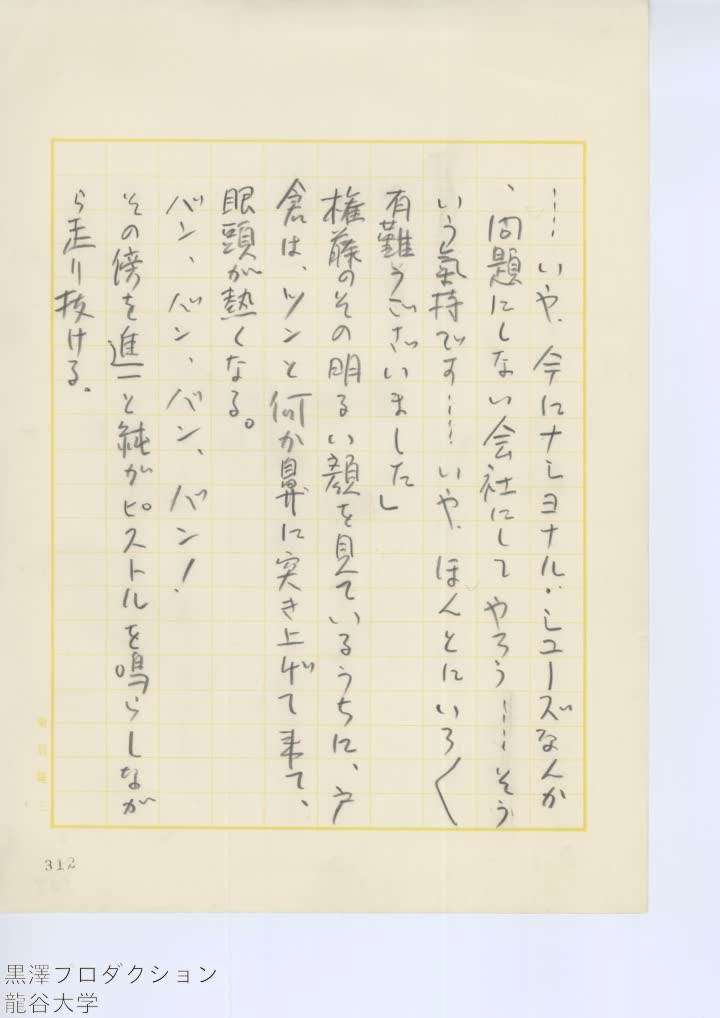 ……いや、今にナショナル・シューズなんか
、問題にしない会社にしてやろう……そう
いう氣持です……いや、ほんとにいろ〱
有難うございました」
権藤のその明るい顔を見ているうちに、戸
倉は、ツンと何か鼻に突き上げて来て、
眼頭が熱くなる。
バン、バン、バン、バン！
その傍を進一と純がピストルを鳴らしなが
ら走り抜ける。
312
黒澤プロダクション
龍谷大学